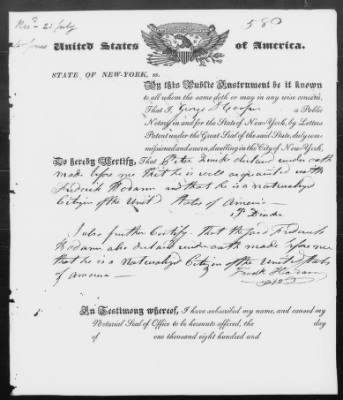 Rec'd 21 July
580
United States of America.
STATE OF NEW-YORK, ss.
By this Public Instrument be it known
to all whom the same doth or may in any wise concern,
That I, George S
a Public
Notary in and for the State of New-York, by Letters
Patent under the Great Seal of the said State, duly com-
missioned and sworn, dwelling in the City of New-York,
Do hereby Certify, That Peter declared under oath
made before me that he is well acquainted with
Frederick and that he is a naturalized
Citizen of the United States of America
I also further Certify that the said Frederick
also declared under oath made before me
that he is a Naturalized Citizen of the United States
of America
In Testimony whereof, I have subscribed my name, and caused my
Notarial Seal of Office to be hereunto affixed, the day
of one thousand eight hundred and